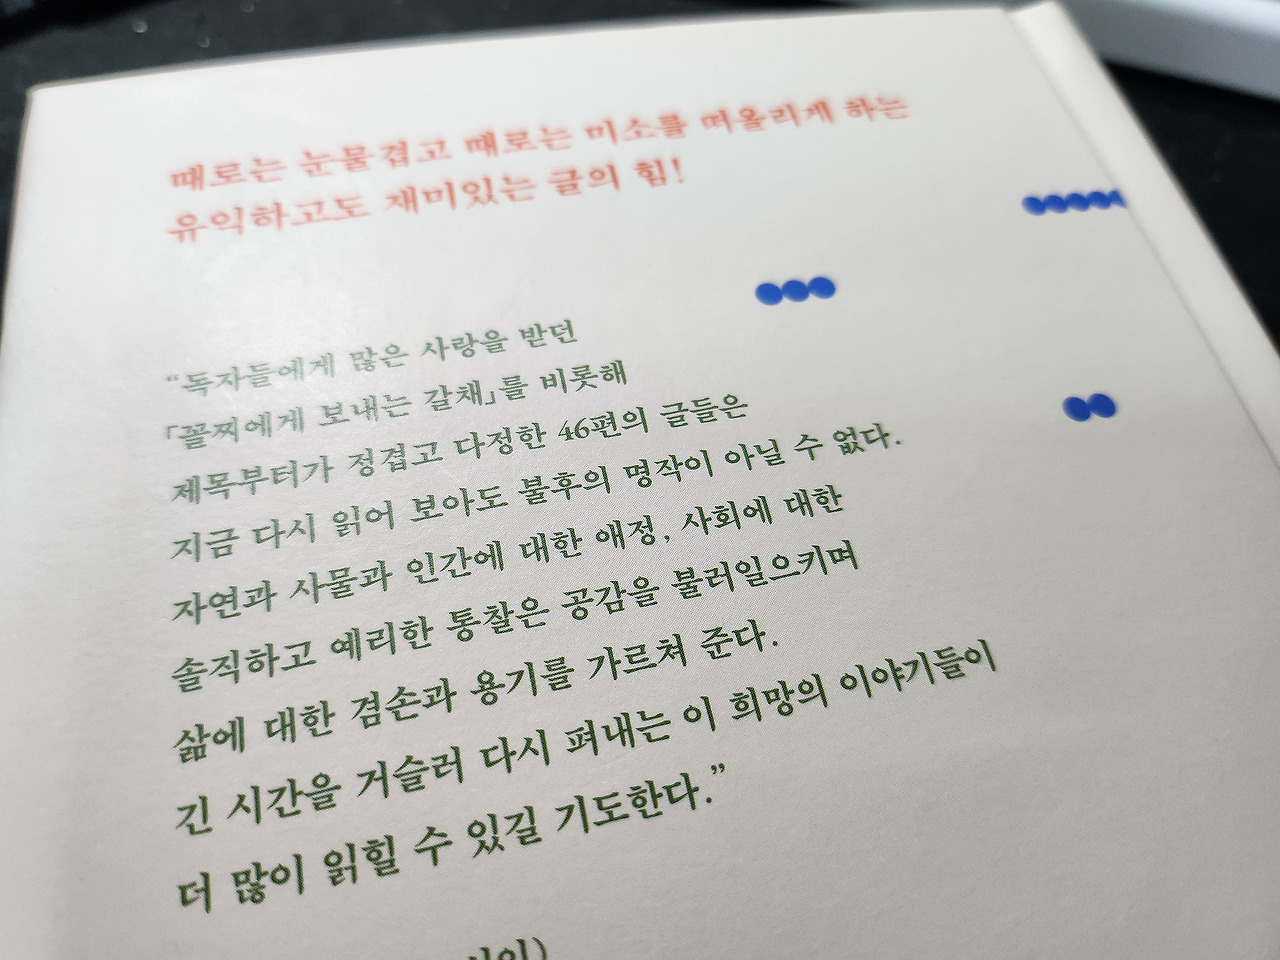 때로는 눈물겹고 때로는 미소를 떠올리게 하는
유익하고도 재미있는 글의 힘!
“독자들에게 많은 사랑을 받던
「꼴찌에게 보내는 갈채」를 비롯해
제목부터가 정겹고 다정한 46편의 글들은
지금 다시 읽어 보아도 불후의 명작이 아닐 수 없다.
자연과 사물과 인간에 대한 애정, 사회에 대한
솔직하고 예리한 통찰은 공감을 불러일으키며
삶에 대한 겸손과 용기를 가르쳐 준다.
긴 시간을 거슬러 다시 펴내는 이 희망의 이야기들이
더 많이 읽힐 수 있길 기도한다.”